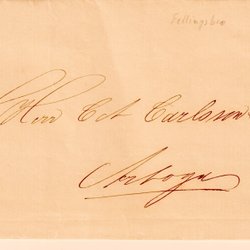 Fellingsbro
Herr C A Carlsson
Arboga